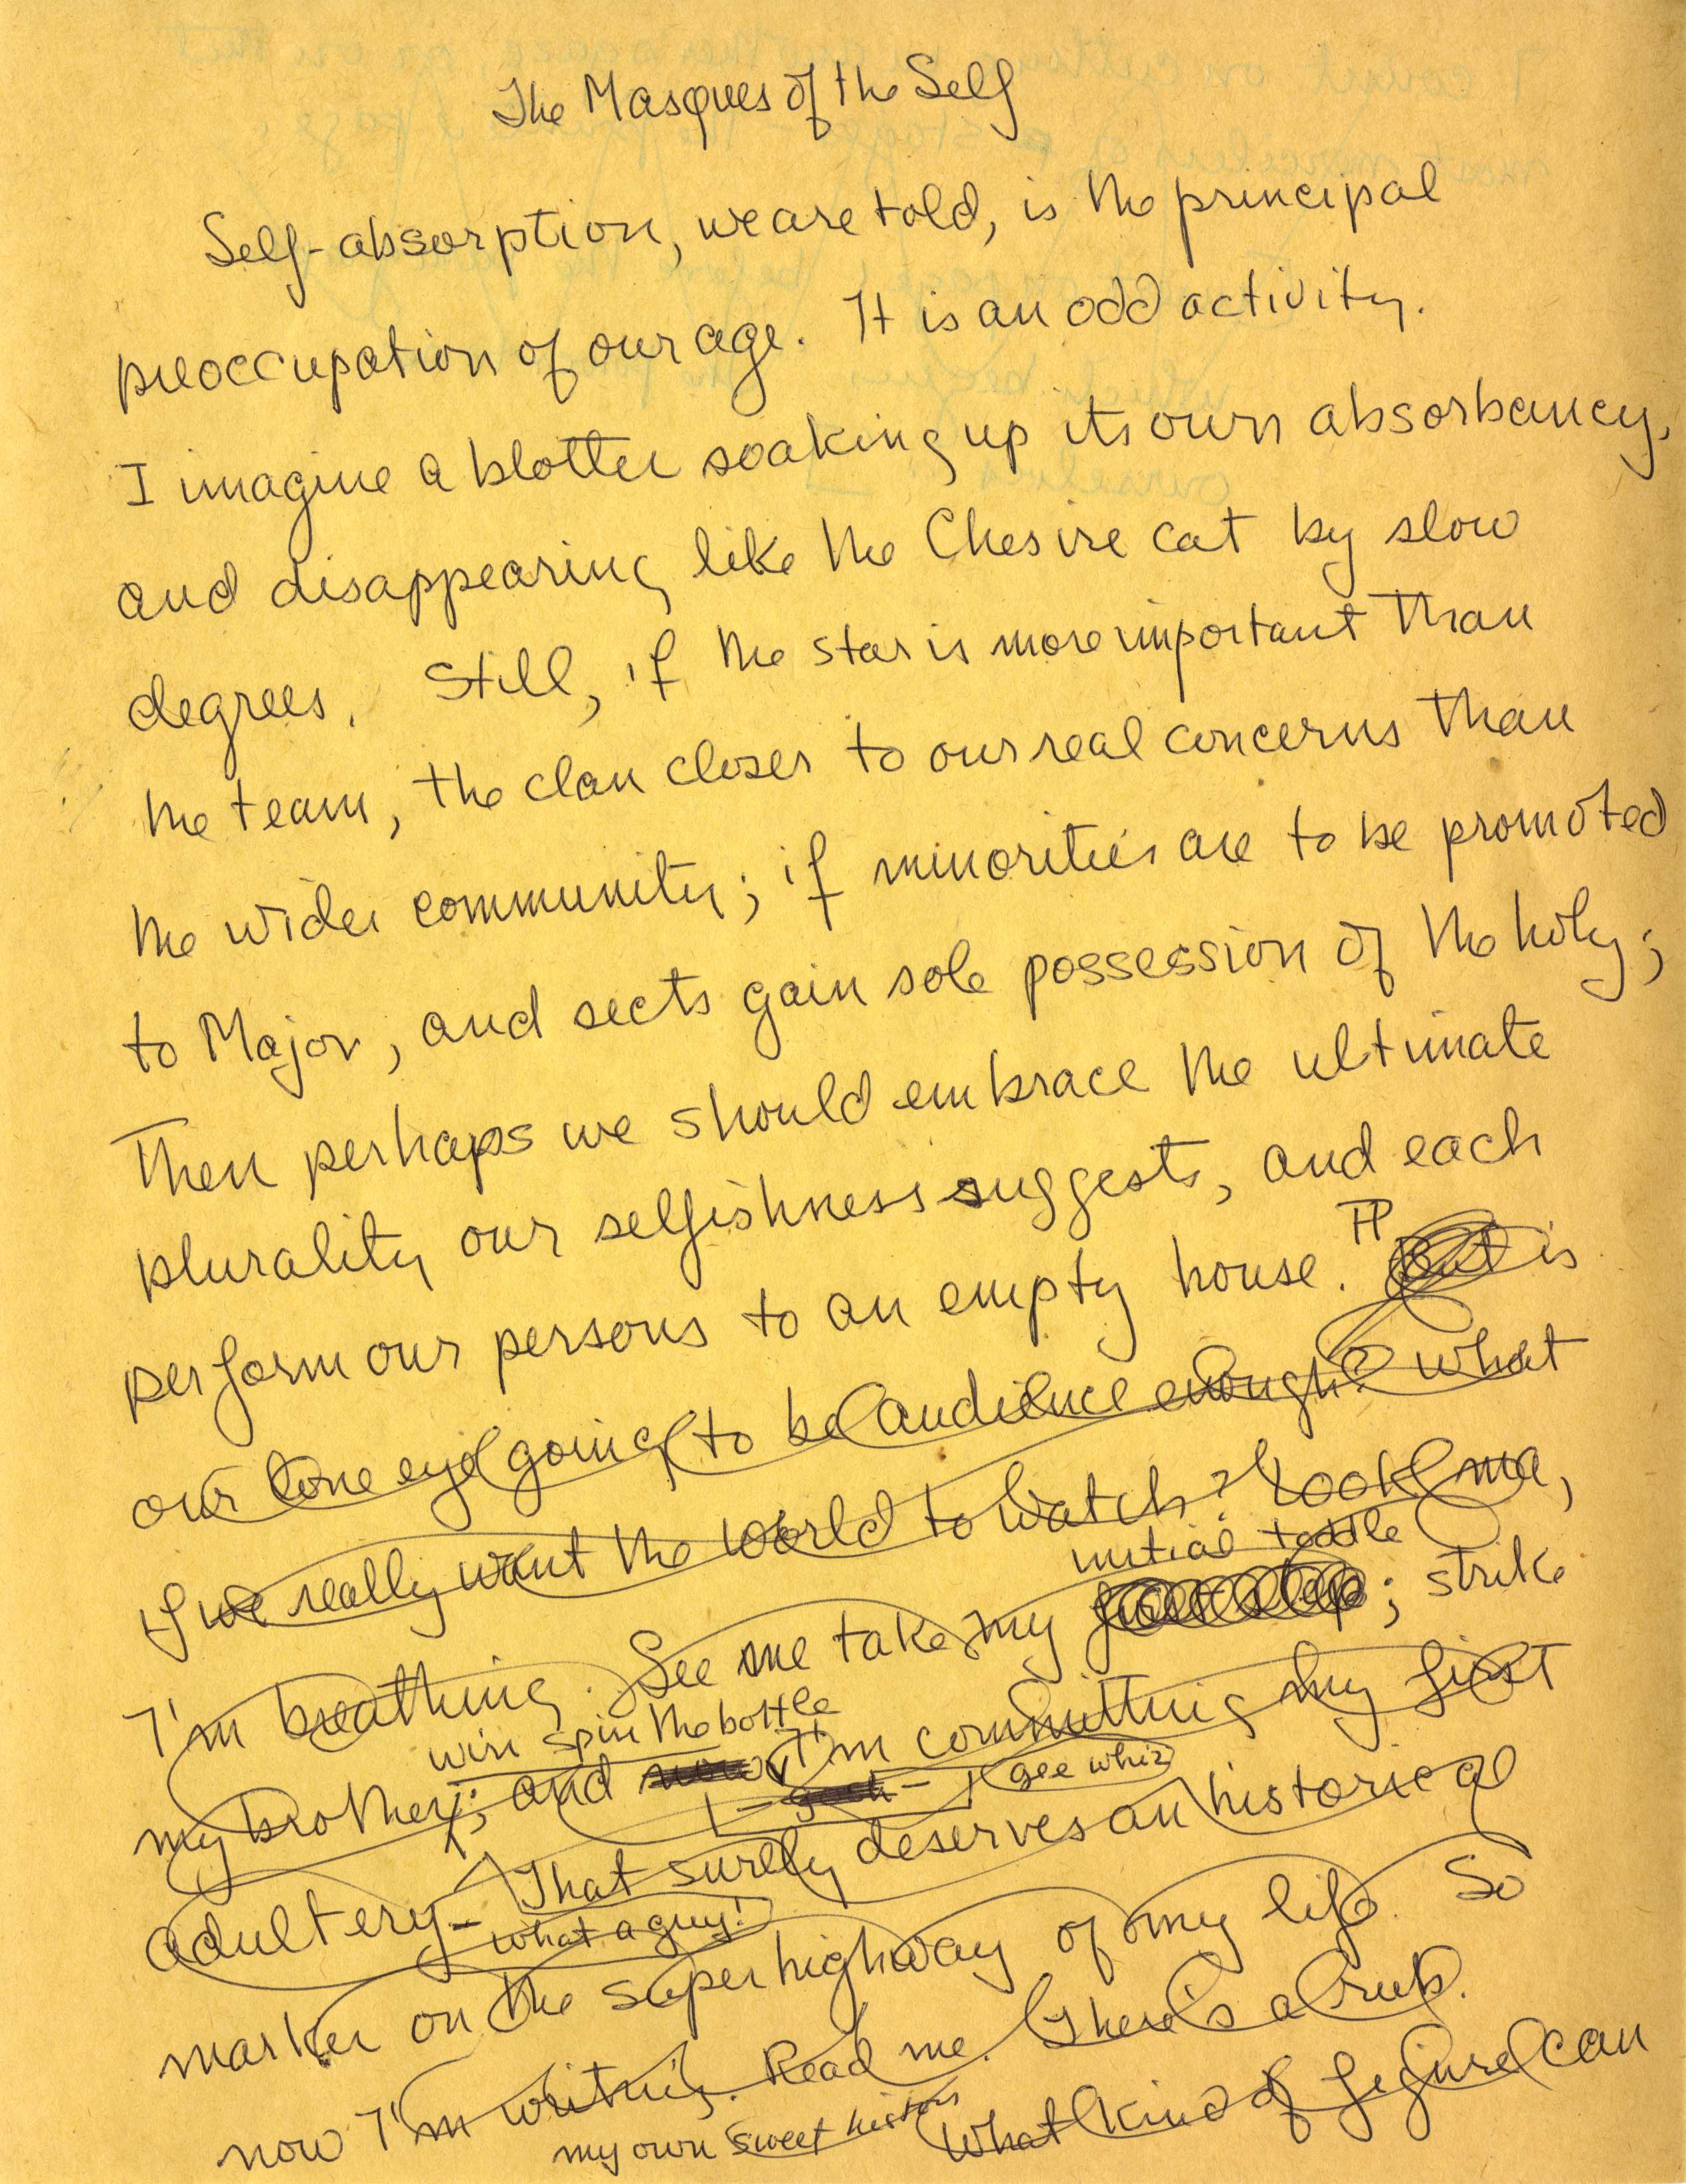 The Masques of the Self
Self-absorption, we are told, is the principal
preoccupation of our age. It is an odd activity.
I imagine a blotter soaking up its own absorbancy,
and disappearing like the Chesire cat by slow
degrees. Still, if the star is more important than
the team, the clan closer to our real concerns than
the wider community; if minorities are to be promoted
to Major, and sects gain sole possession of the holy;
Then perhaps we should embrace the ultimate
plurality our selfishness suggests, and each
perform our persons to an empty house. ¶ But is
our lone eye going to be audience enough? what
if we really want the world to watch? Look ma,
initial toddle
I'm breathing. See me take my first step; strike
win spin the bottle
my brother; and now, I'm committing my first
- gosh - gee whiz
adultery - That surely deserves an historical
what a guy!
marker on the superhighway of my life. So
now I'm writing. Read me. There's a rub.
my own sweet history What kind of figure can